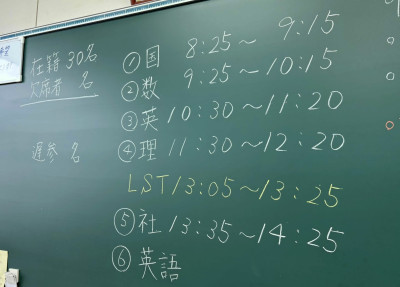 在籍 30名
欠席者 名
遅参 名
①国 8:25～ 9:15
②数 9:25～10:15
③英 10:30～11:20
④理 11:30～12:20
LST 13:05～13:25
⑤社 13:35～14:25
⑥英語